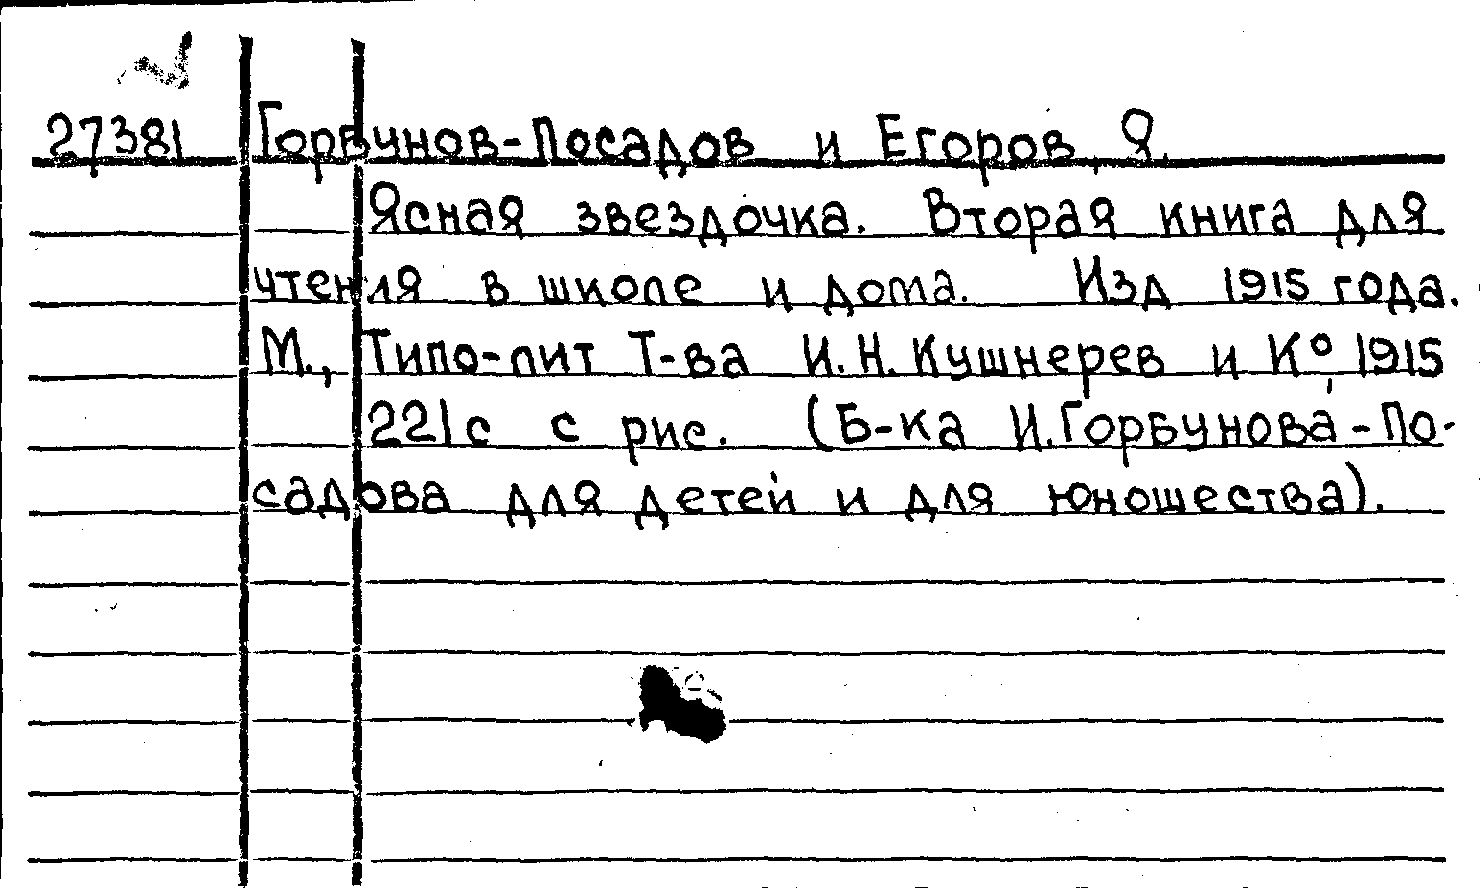 27381 Горбунов-Посадов и Егоров, Я.
Ясная звездочка. Вторая книга для
чтения в школе и дома. Изд 1915 года.
М., Типо-лит Т-ва И.Н.Кушнерев и К⁰, 1915
221с с рис. (Б-ка И.Горбунова-По-
садова для детей и для юношества).